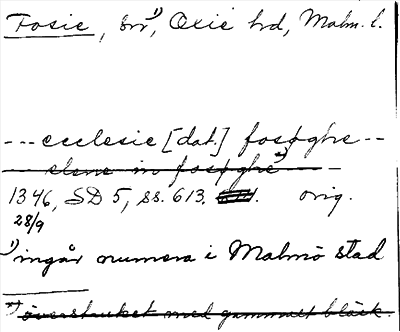 Fosie, srr¹⁾, Oxie hd, Malm. l.
--- ecclesie [dat.] fosøghe --
elene in fosøghe *)
1346, SD 5, ss. 613. orig.
28/9
¹⁾ ingår numera i Malmö stad
*) överstruket med gammalt bläck.